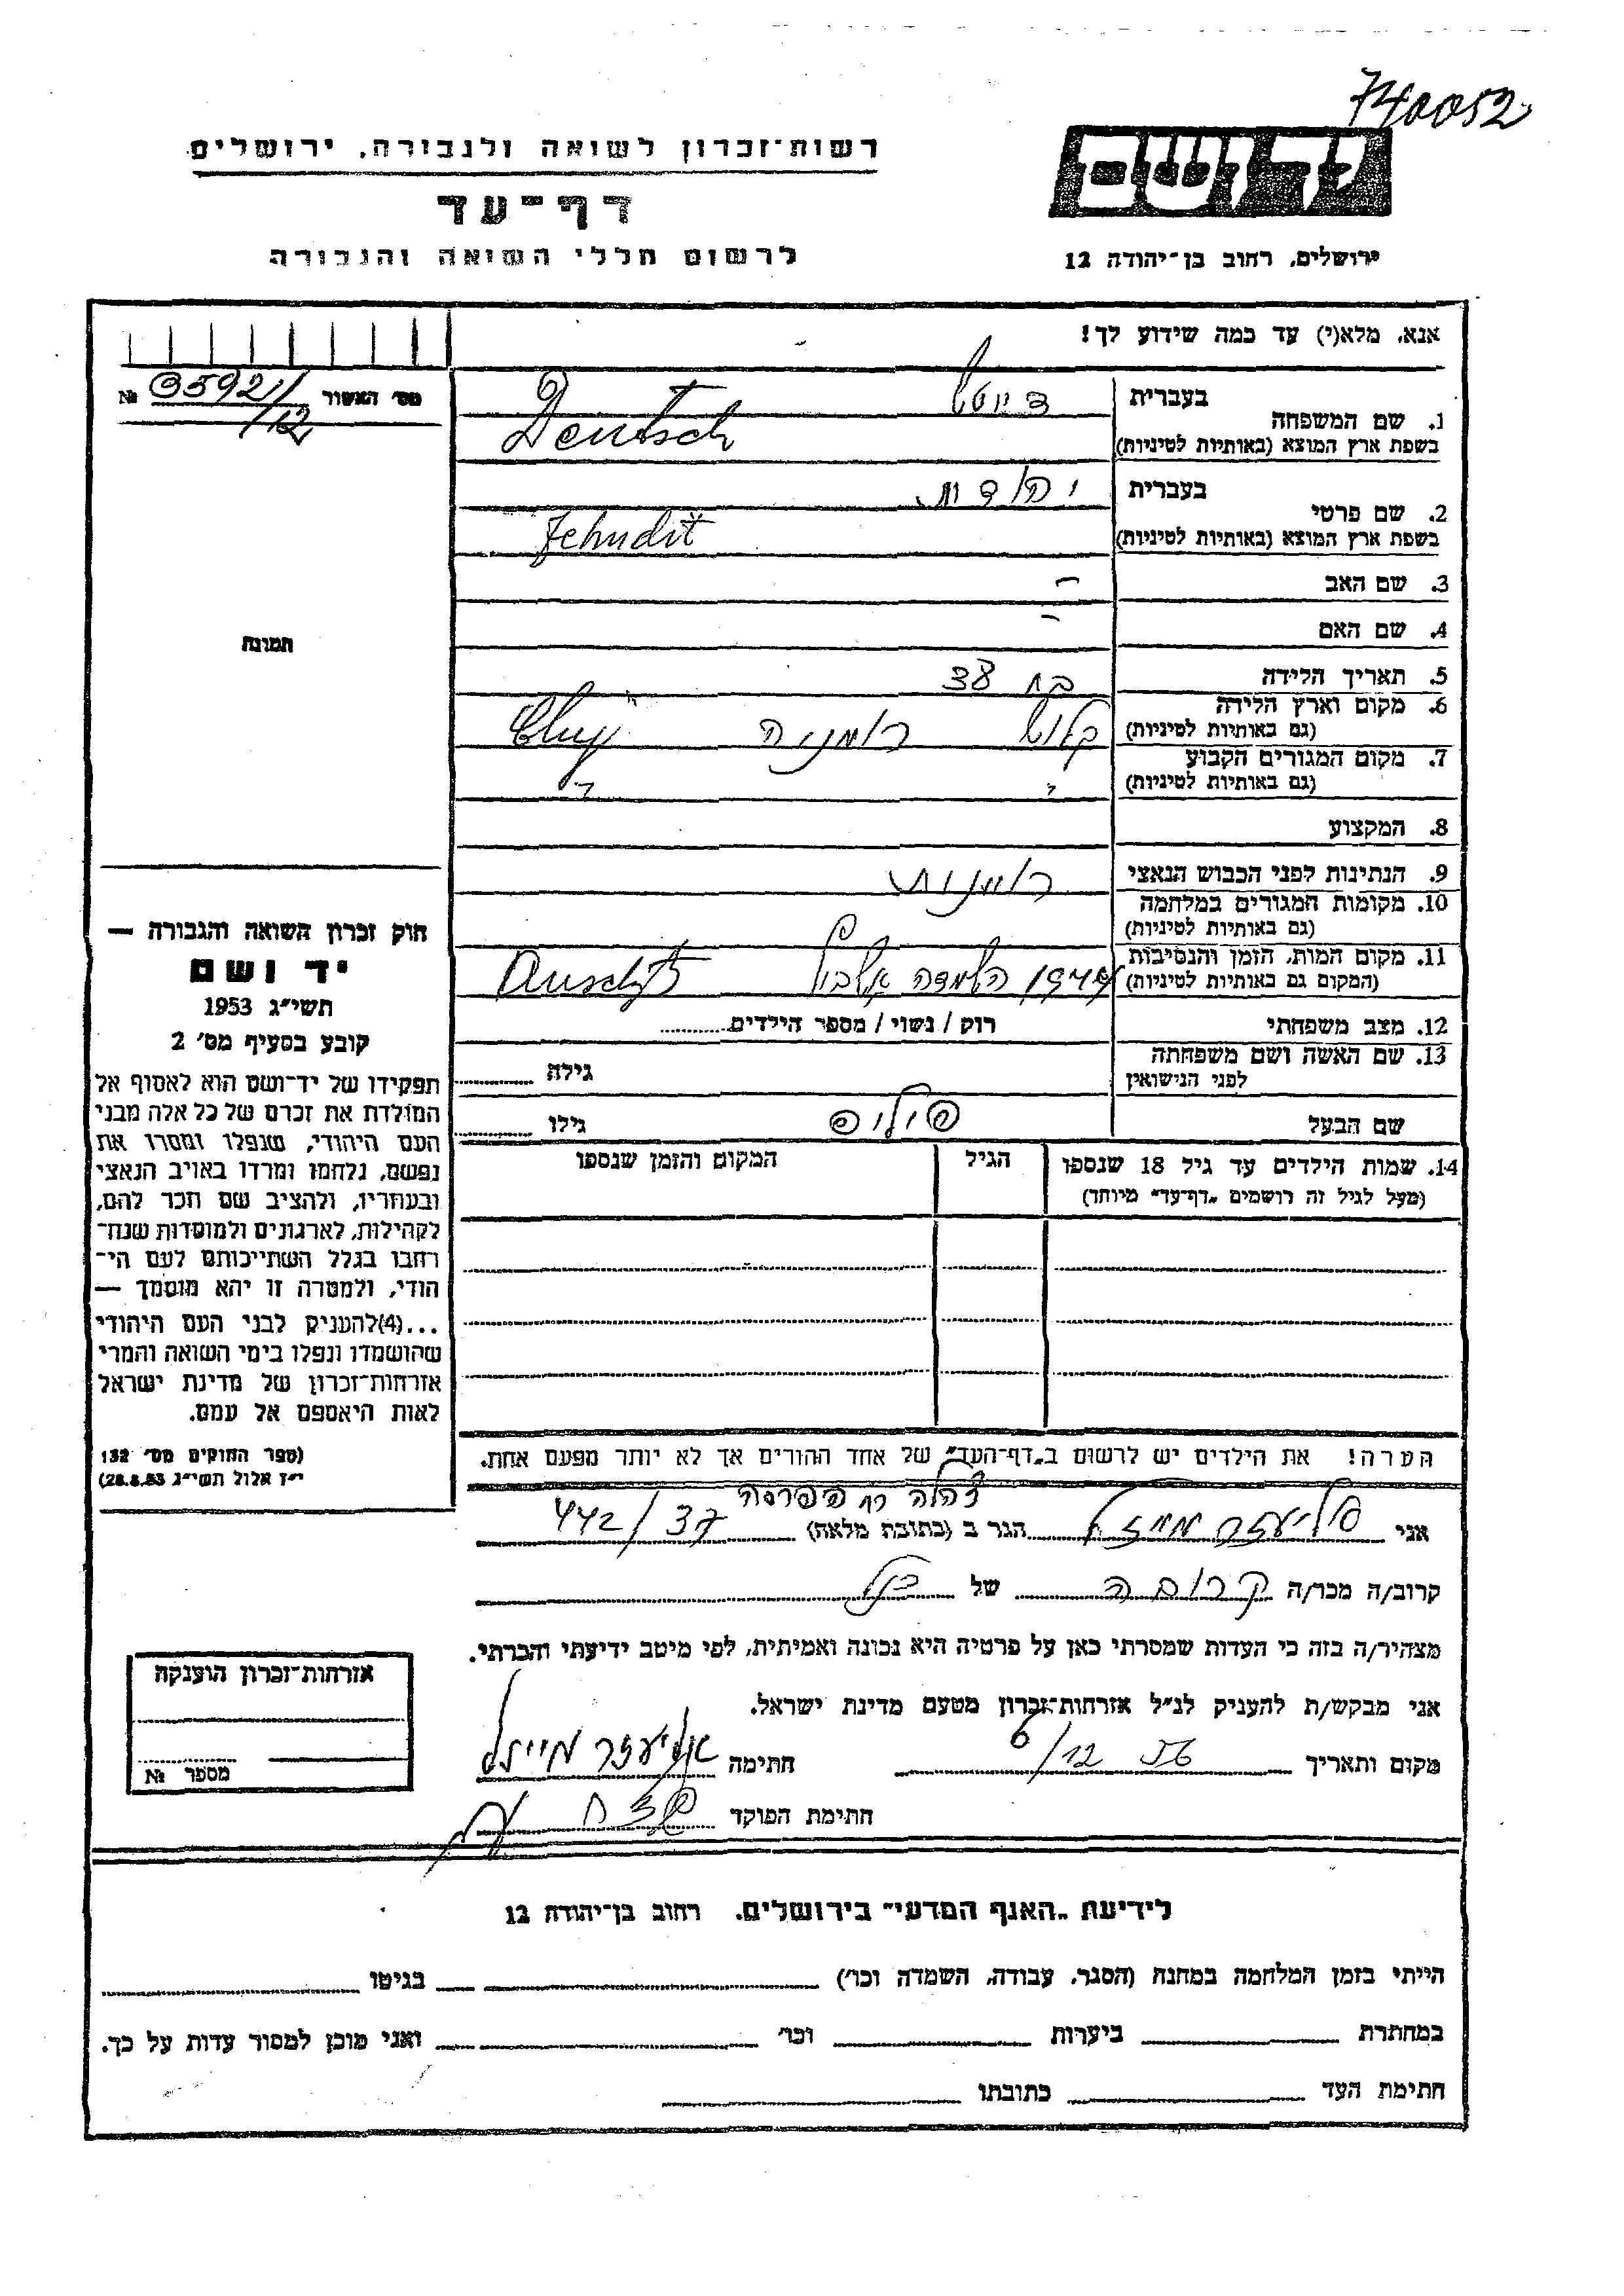 740052
יד ושם
רשות-זכרון לשואה ולגבורה, ירושלים
דף-עד
ירושלים, רחוב בן-יהודה 12
לרשום חללי השואה והגבורה
אנא, מלא(י) עד כמה שידוע לך!
מס' האשור № 35921/12
1. שם המשפחה
בעברית דייטש
בשפת ארץ המוצא (באותיות לטיניות) Deutsch
2. שם פרטי
בעברית יהודית
בשפת ארץ המוצא (באותיות לטיניות) Jehudit
3. שם האב -
4. שם האם -
תמונה
5. תאריך הלידה בת 38
6. מקום וארץ הלידה
(גם באותיות לטיניות) קלוז' רומניה Cluj
7. מקום המגורים הקבוע
(גם באותיות לטיניות)
8. המקצוע
9. הנתינות לפני הכבוש הנאצי רומנית
10. מקומות המגורים במלחמה
(גם באותיות לטיניות)
11. מקום המות, הזמן והנסיבות
(המקום גם באותיות לטיניות) 1944 הושמדה
12. מצב משפחתי רוק / נשוי / מספר הילדים
13. שם האשה ושם משפחתה
לפני הנישואין גילה
שם הבעל פיליפ גילו
14. שמות הילדים עד גיל 18 שנספו הגיל המקום והזמן שנספו
(מעל לגיל זה רושמים "דף-עד" מיוחד)
חוק זכרון השואה והגבורה —
יד ושם
תשי"ג 1953
קובע בסעיף מס' 2
תפקידו של יד-ושם הוא לאסוף אל
המולדת את זכרם של כל אלה מבני
העם היהודי, שנפלו ומסרו את
נפשם, נלחמו ומרדו באויב הנאצי
ובעוזריו, ולהציב שם וזכר להם,
לקהילות, לארגונים ולמוסדות שנח-
רבו בגלל השתייכותם לעם הי-
הודי, ולמטרה זו יהא מוסמך —
...(4)להעניק לבני העם היהודי
שהושמדו ונפלו בימי השואה והמרי
אזרחות-זכרון של מדינת ישראל
לאות היאספם אל עמם.
(ספר החוקים מס' 132
י"ז אלול תשי"ג 28.8.53)
הערה! את הילדים יש לרשום ב"דף-העד" של אחד ההורים אך לא יותר מפעם אחת.
אני אליעזר מייזל הגר ב (כתובת מלאה) 442/37
קרוב/ה מכר/ה קרובה של
מצהיר/ה בזה כי העדות שמסרתי כאן על פרטיה היא נכונה ואמיתית, לפי מיטב ידיעתי והכרתי.
אני מבקש/ת להעניק לנ"ל אזרחות-זכרון מטעם מדינת ישראל.
מקום ותאריך 12/6 חתימה אליעזר מייזל
חתימת הפוקד
אזרחות-זכרון הוענקה
מספר №
לידיעת "האגף המדעי" בירושלים, רחוב בן-יהודה 12
הייתי בזמן המלחמה במחנה (הסגר, עבודה, השמדה וכו') בגיטו
במחתרת ביערות וכו' ואני מוכן למסור עדות על כך.
חתימת העד כתובתו